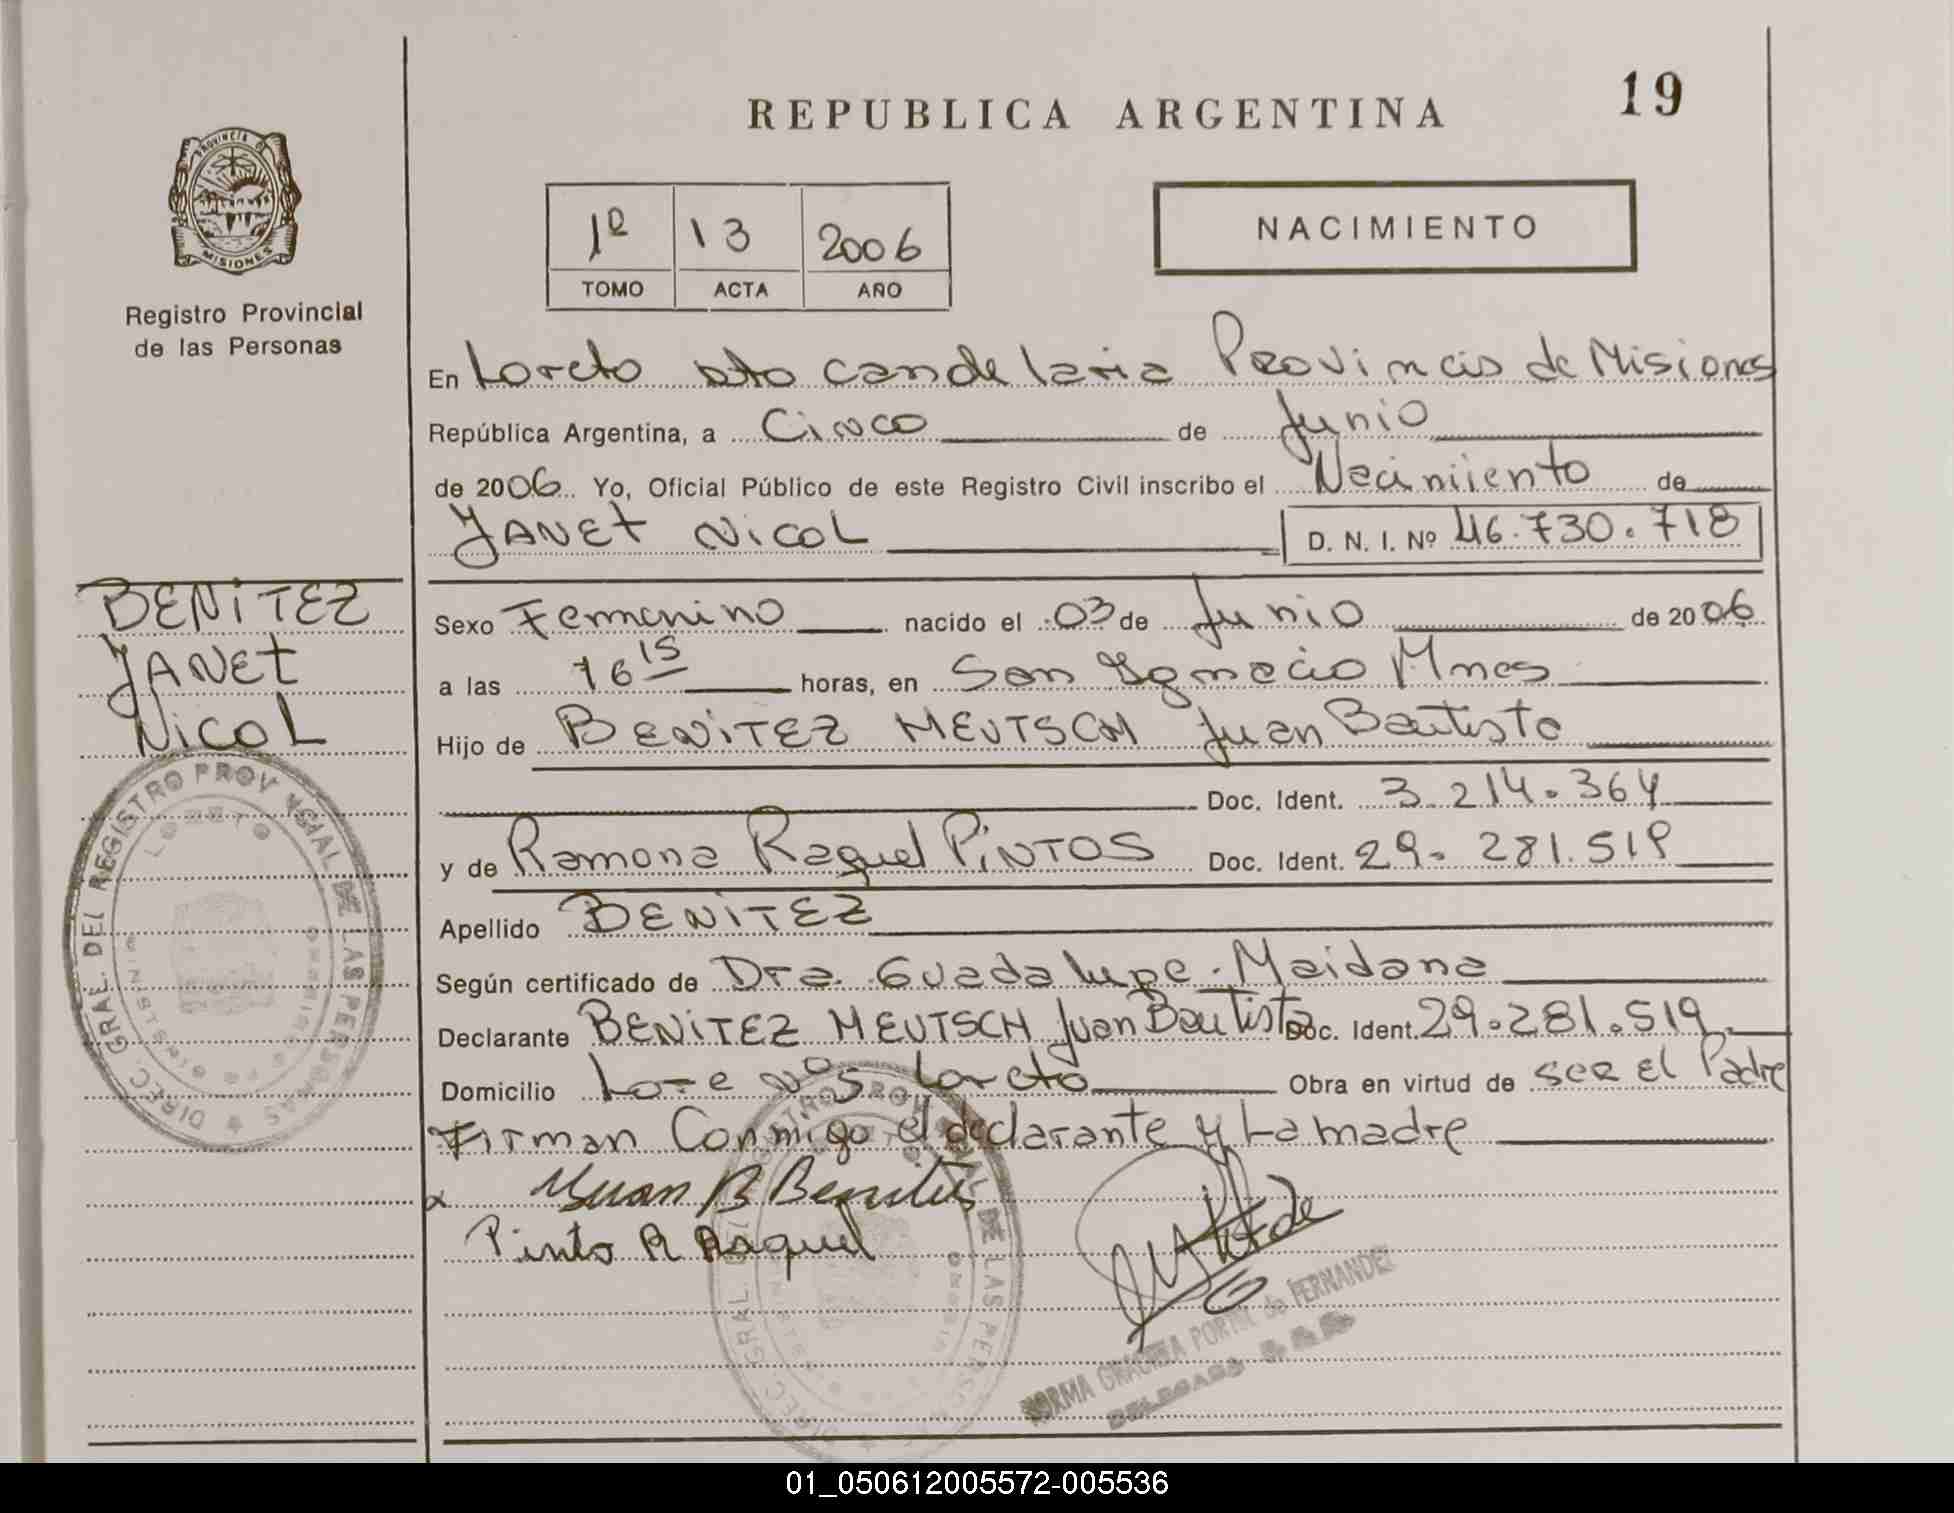 REPUBLICA ARGENTINA
19
PROVINCIA D
MISIONES
Registro Provincial
de las Personas
1º 13 2006
TOMO ACTA AÑO
NACIMIENTO
En Loreto dto Candelaria Provincia de Misiones
República Argentina, a Cinco de Junio
de 2006 Yo, Oficial Público de este Registro Civil inscribo el Nacimiento de
JANET NICOL D. N. I. Nº 46.730.718
BENITEZ
JANET
NICOL
Sexo Femenino nacido el 03 de Junio de 2006
a las 16 15 horas, en San Ignacio Mnes
Hijo de BENITEZ MEUTSCH Juan Bautista
Doc. Ident. 3.214.364
y de Ramona Raquel PINTOS Doc. Ident. 29.281.519
Apellido BENITEZ
Según certificado de Dra. Guadalupe Maidana
Declarante BENITEZ MEUTSCH Juan Bautista Doc. Ident. 29.281.519
Domicilio Lote Nº5 Loreto Obra en virtud de ser El Padre
Firman Conmigo el declarante y La madre
Juan B Benitez
Pinto R Raquel
DIREC. GRAL. DEL REGISTRO PROV DE LAS PERSONAS
LORETO
MISIONES
NORMA GRACIELA PORTAL de FERNANDEZ
DELEGADA
01_050612005572-005536